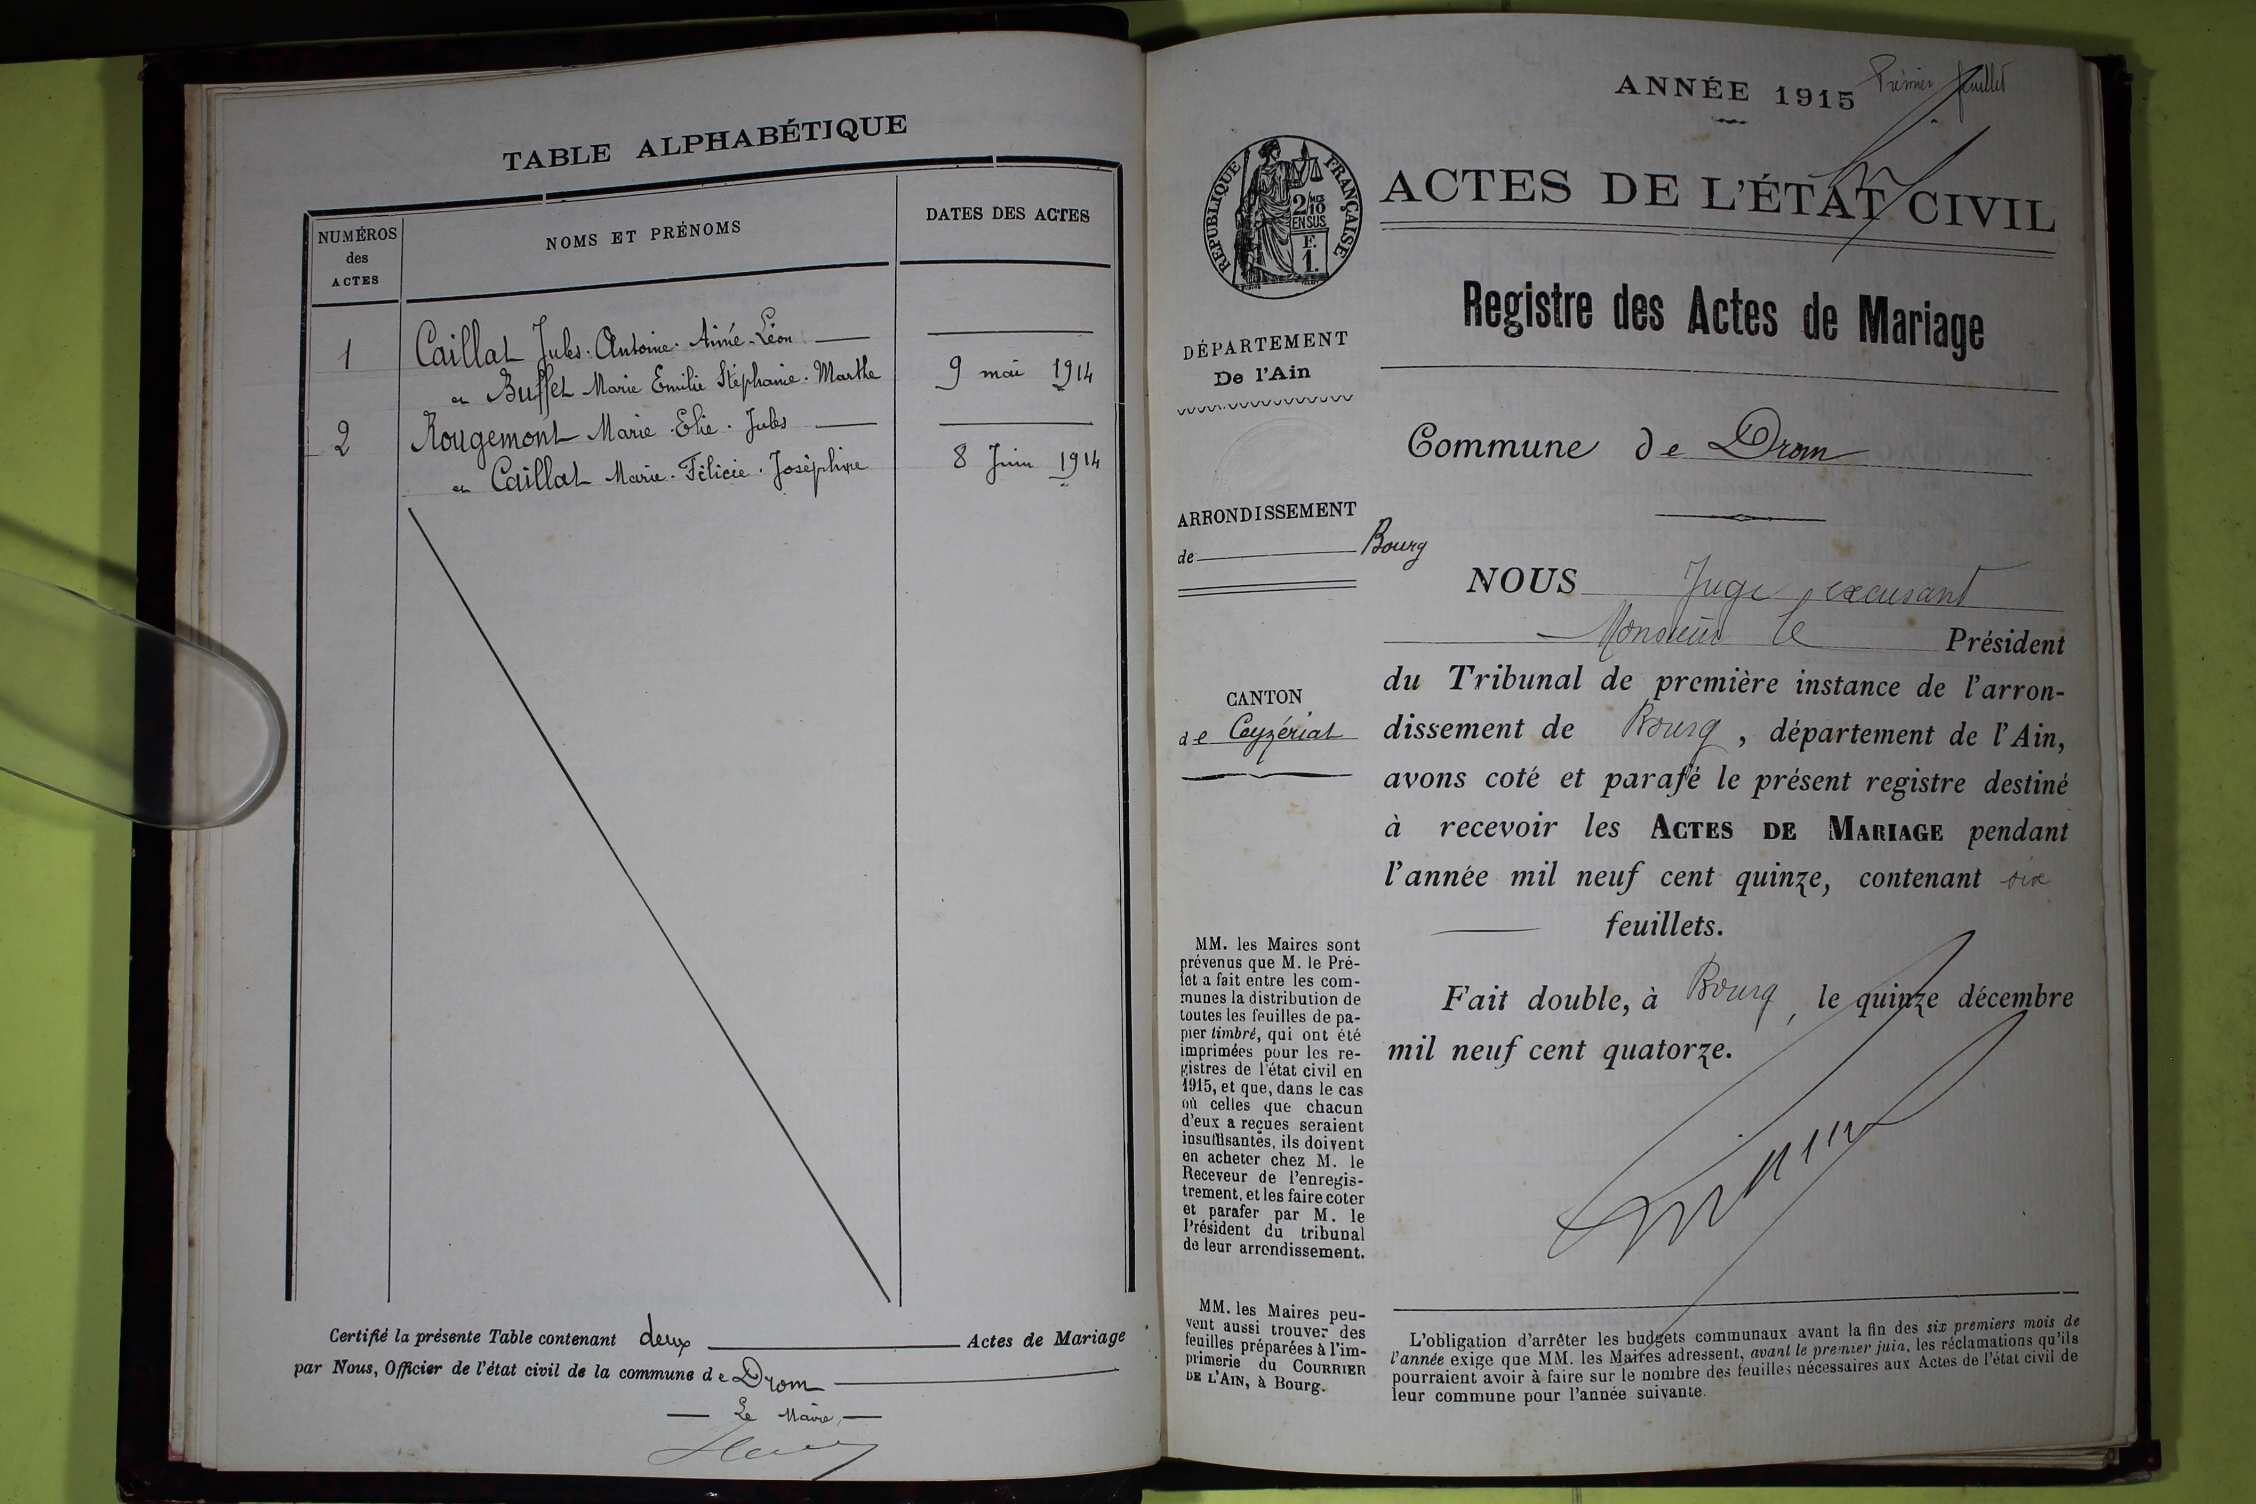 TABLE ALPHABÉTIQUE
NUMÉROS
des
ACTES
NOMS ET PRÉNOMS
DATES DES ACTES
1 Caillat Jules. Antoine. Aimé. Léon
et Buffet Marie Emilie Stéphanie. Marthe 9 mai 1914
2 Rougemont Marie. Elie. Jules
et Caillat Marie. Félicie. Joséphine 8 Juin 1914
Certifié la présente Table contenant deux Actes de Mariage
par Nous, Officier de l'état civil de la commune de Drom
Le Maire,
ANNÉE 1915
Premier feuillet
RÉPUBLIQUE FRANÇAISE
2/10
EN SUS
F.
1.
ACTES DE L'ÉTAT CIVIL
Registre des Actes de Mariage
DÉPARTEMENT
De l'Ain
Commune de Drom
ARRONDISSEMENT
de Bourg
CANTON
de Ceyzériat
NOUS Juge excusant
Monsieur le Président
du Tribunal de première instance de l'arron-
dissement de Bourg, département de l'Ain,
avons coté et parafé le présent registre destiné
à recevoir les ACTES DE MARIAGE pendant
l'année mil neuf cent quinze, contenant six
feuillets.
Fait double, à Bourg, le quinze décembre
mil neuf cent quatorze.
MM. les Maires sont
prévenus que M. le Pré-
fet a fait entre les com-
munes la distribution de
toutes les feuilles de pa-
pier timbré, qui ont été
imprimées pour les re-
gistres de l'état civil en
1915, et que, dans le cas
où celles que chacun
d'eux a reçues seraient
insuffisantes, ils doivent
en acheter chez M. le
Receveur de l'enregis-
trement, et les faire coter
et parafer par M. le
Président du tribunal
de leur arrondissement.
MM. les Maires peu-
vent aussi trouver des
feuilles préparées à l'im-
primerie du COURRIER
DE L'AIN, à Bourg.
L'obligation d'arrêter les budgets communaux avant la fin des six premiers mois de
l'année exige que MM. les Maires adressent, avant le premier juin, les réclamations qu'ils
pourraient avoir à faire sur le nombre des feuilles nécessaires aux Actes de l'état civil de
leur commune pour l'année suivante.